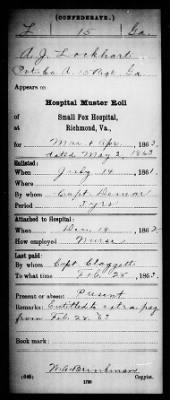 (CONFEDERATE.)
L 15 Ga
A. J. Lockhart
Pvt. Co. A. 15 Regt. Ga.
Appears on
Hospital Muster Roll
of
Small Pox Hospital,
at Richmond, Va.,
for Mar & Apr, 1863.
dated May 2 1863
Enlisted:
When July 14, 1861.
Where
By whom Capt
Period 3 yrs
Attached to Hospital:
When Dec 18, 1862
How employed Nurse
Last paid:
By whom Capt. Claggett
To what time Feb. 28, 1863
Present or absent Present
Remarks: Entitled to extra pay
from Feb. 28. 63
Book mark:
Copyist.